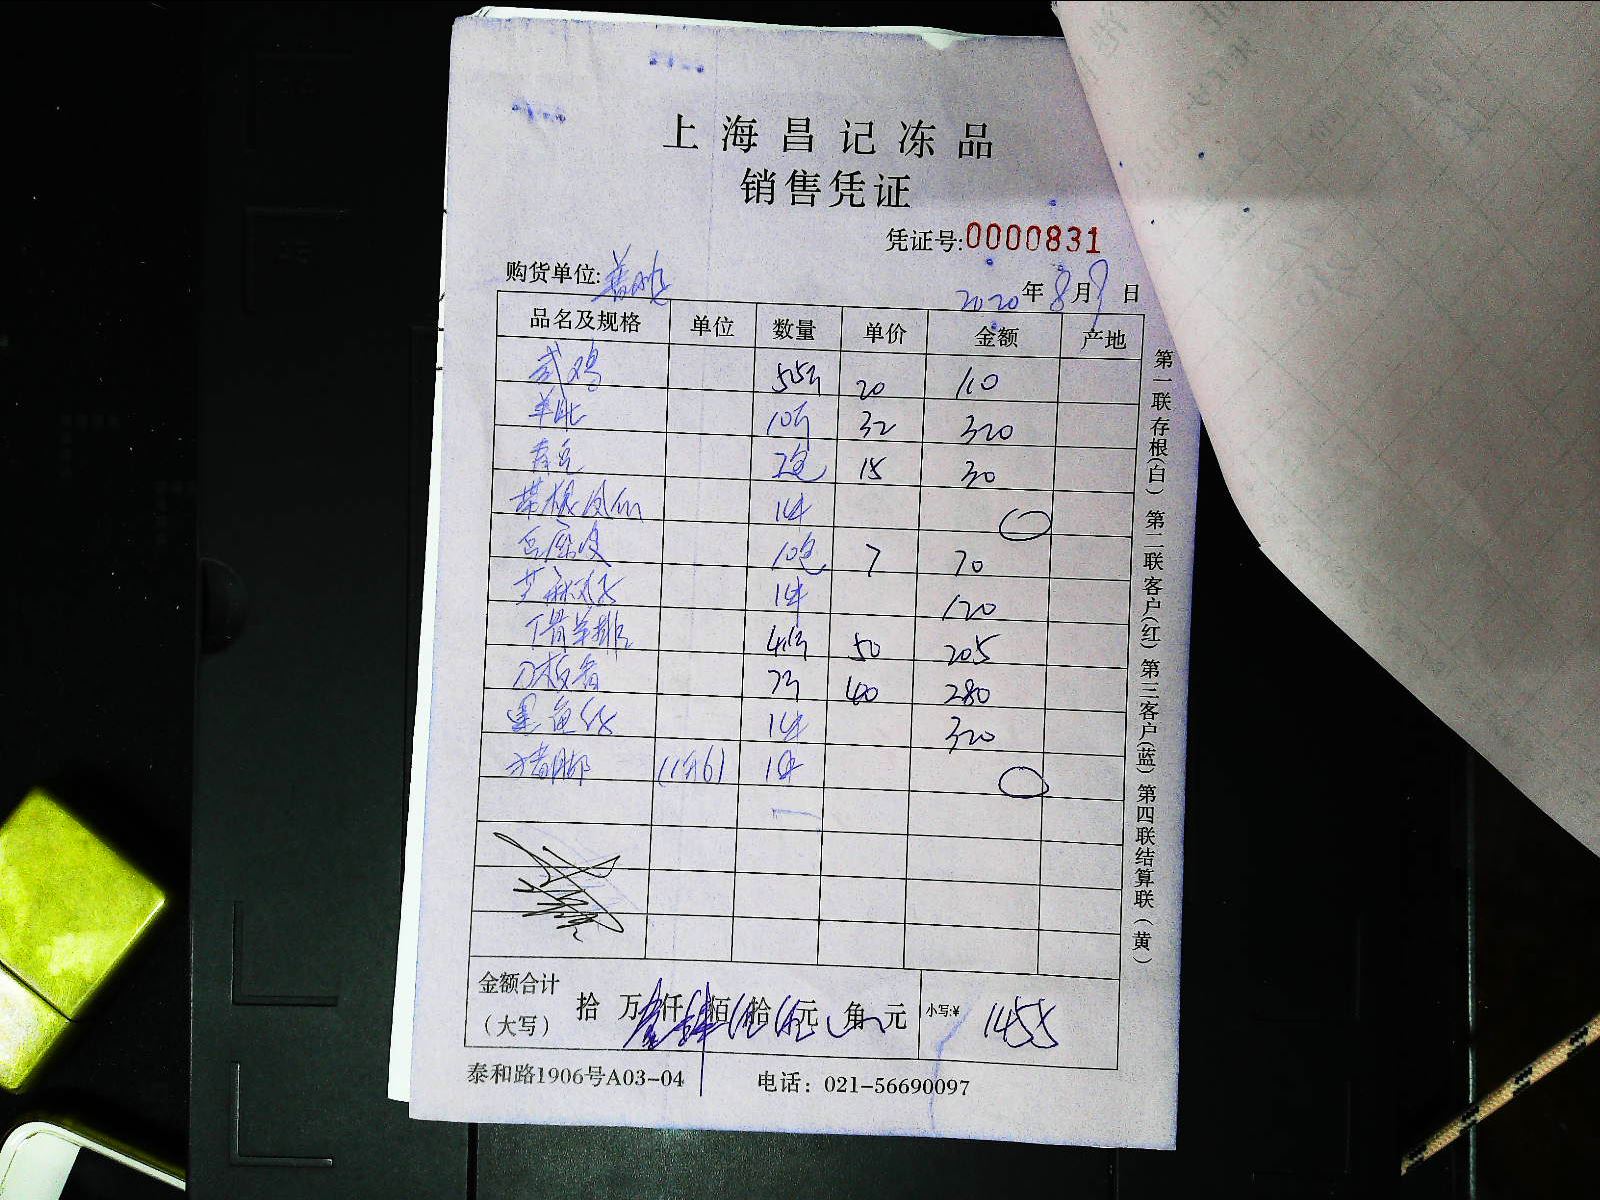 上海昌记冻品
销售凭证
凭证号:0000831
购货单位:
2020年8月9日
品名及规格 单位 数量 单价 金额 产地
鸡 5.5斤 20 110
羊 10斤 32 320
2包 15 30
带根 1件
豆腐皮 10包 7 70
芝麻 1件 120
丁骨羊排 4.1斤 50 205
刀板香 7斤 40 280
黑鱼 1件 320
猪脚 1件
金额合计(大写) 拾万壹仟肆佰伍拾伍元角元 小写:¥ 1455
泰和路1906号A03-04 电话:021-56690097
第一联存根(白) 第二联客户(红) 第三客户(蓝) 第四联结算联(黄)